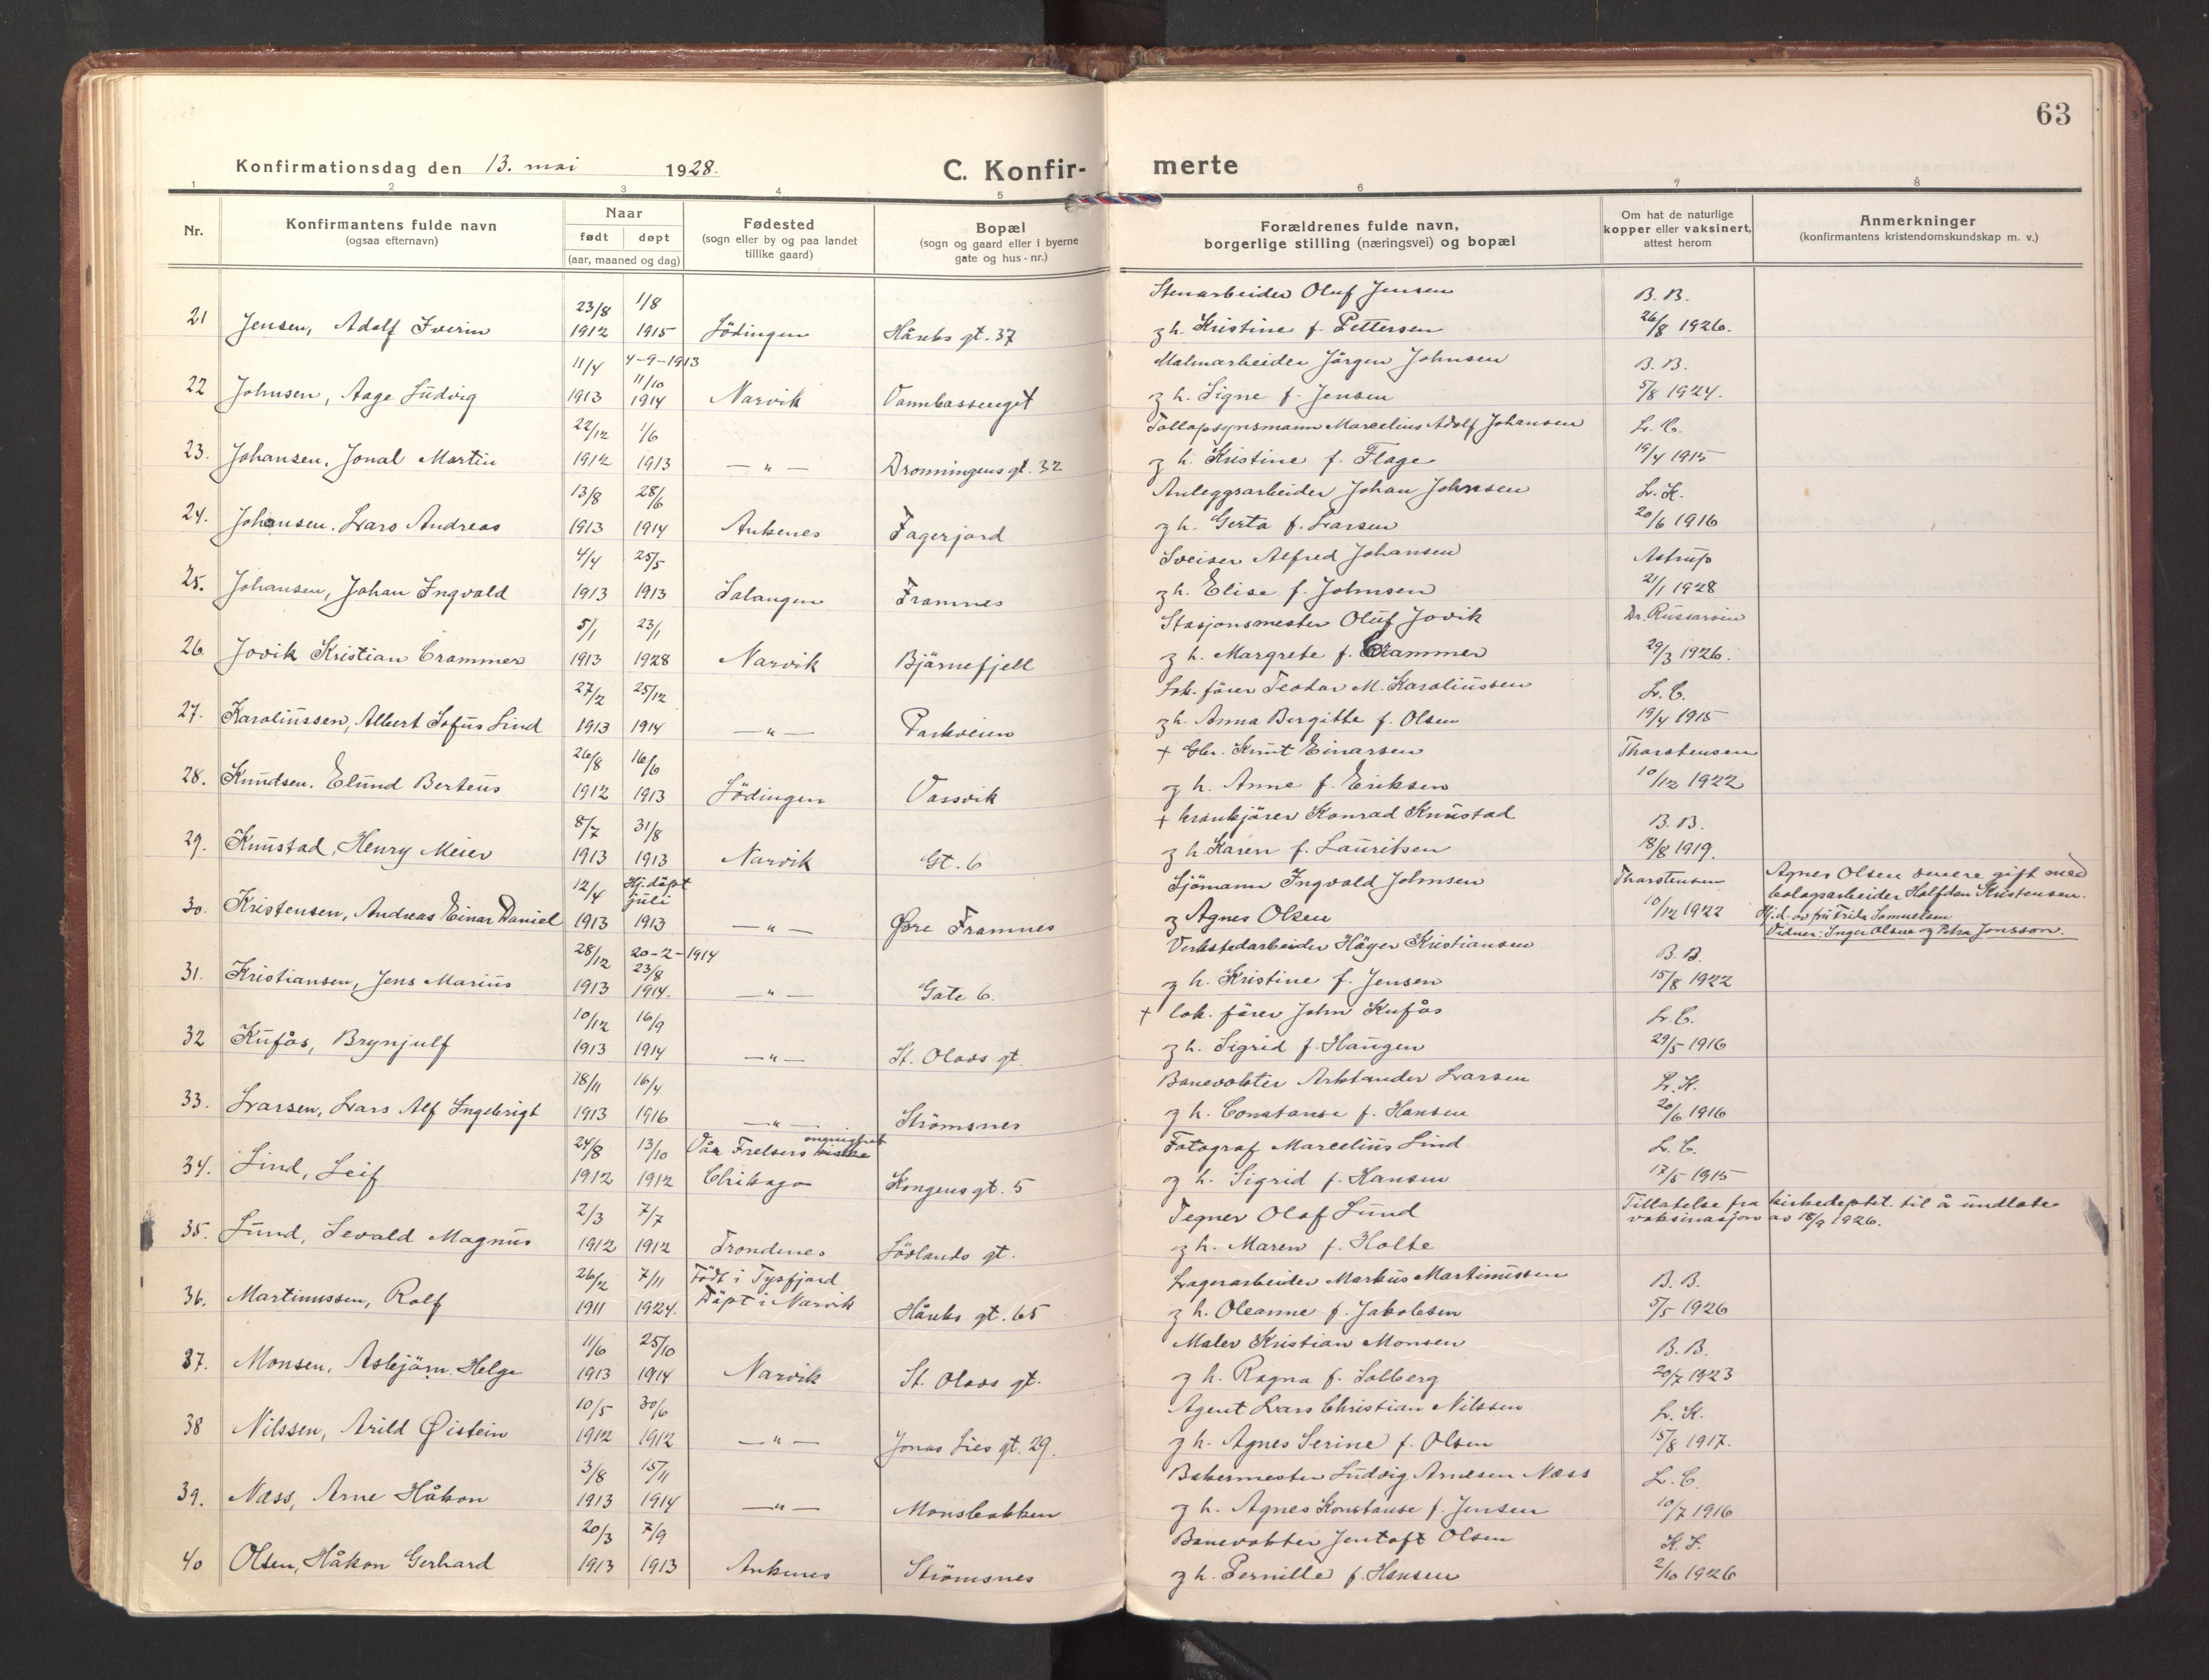 63
Konfirmationsdag den 13. mai 1928. C. Konfir- merte
1 2 3 4 5 6 7 8
Nr. Konfirmantens fulde navn (ogsaa efternavn) Naar født døpt (aar, maaned og dag) Fødested (sogn eller by og paa landet tillike gaard) Bopæl (sogn og gaard eller i byerne gate og hus-nr.) Forældrenes fulde navn, borgerlige stilling (næringsvei) og bopæl Om hat de naturlige kopper eller vaksinert, attest herom Anmerkninger (konfirmantens kristendomskundskap m. v.)
23/8 1/8 Stenarbeider Oluf Jensen B. B.
21 Jensen, Adolf Iverin 1912 1915 Lödingen Håreks gt. 37 og h. Kristine f. Pettersen 26/8 1926.
11/4 4-9-1913 11/10 Malmarbeider Jörgen Johnsen B. B.
22 Johnsen, Aage Ludvig 1913 1914 Narvik Vannbassenget og h. Signe f. Jensen 5/8 1924.
22/12 1/6 Tollopsynsmann Marcelius Adolf Johansen L. C.
23. Johansen, Jonal Martin 1912 1913 — " — Dronningens gt. 32 og h. Kristine f. Flage 19/4 1915
13/8 28/6 Anleggsarbeider Johan Johnsen L. K.
24. Johansen. Lars Andreas 1913 1914 Ankenes Fagerjord og h. Gerta f. Larsen 20/6 1916
4/4 25/5 Sveiser Alfred Johansen Astrup
25. Johansen, Johan Ingvald 1913 1913 Salangen Framnes og h. Elise f. Johnsen 21/1 1928
5/1 23/1 Stasjonsmester Oluf Jovik Dr.
26 Jovik Kristian Crammer 1913 1928 Narvik Bjärnefjell og h. Margrete f. Crammer 29/3 1926.
27/2 25/12 Lok. förer Teodor M. Karoliussen L. C.
27. Karoliussen, Albert Sofus Lind 1913 1914 — " — Parkveien og h. Anna Birgitte f. Olsen 19/4 1915
26/8 16/6 + Gbr. Knut Einarsen Thorstensen
28. Knudsen. Elund Berteus 1912 1913 Lödingen Vassvik og h. Anne f. Eriksen 10/12 1922
8/7 31/8 + krankjörer Konrad Knustad B. B.
29. Knustad, Henry Meier 1913 1913 Narvik Gt. 6 og h. Karen f. Lauritsen 18/8 1919.
12/4 Hj. döpt juli Sjömann Ingvald Johnsen Thorstensen Agnes Olsen senere gift med
bolagsarbeider Halfdan Kristensen.
30. Kristensen, Andreas Einar Daniel 1913 1913 — " — Øvre Framnes og Agnes Olsen 10/12 1922 Hj. d. av fru Frida Samuelsen
Vidner: Inger Olsen og Petra Jonsson.
28/12 20-2-1914 23/8 Verkstedarbeider Häger Kristiansen B. B.
31. Kristiansen, Jens Marius 1913 1914. — " — Gate 6. og h. Kristine f. Jensen 15/8 1922
10/12 16/9 + lok. förer John Kufås L. C.
32 Kufås, Brynjulf 1913 1914 — " — St. Olavs gt. og h. Sigrid f. Haugen 29/5 1916
18/11 16/4 Banevokter Arktander Larsen L. K.
33. Larsen, Lars Alf Ingebrigt 1913 1916 — " — Strömsnes og h. Constanse f. Hansen 20/6 1916
24/8 13/10 Vår Frelsers menighet kirke Fotograf Marcelius Lind L. C.
34. Lind, Leif 1912 1912 Chikago Kongens gt. 5 og h. Sigrid f. Hansen 17/5 1915
2/3 7/7 Tegner Olaf Lund Tillatelse fra kirkedeptet til å undlate
35. Lund, Sevald Magnus 1912 1912 Trondenes Lövlands gt. og h. Maren f. Holte vaksinasjon av 18/9 1926.
26/2 7/11 Födt i Tysfjord Lagerarbeider Markus Martinussen B. B.
36. Martinussen, Rolf 1911 1924. Döpt i Narvik Håreks gt. 65 og h. Oleanne f. Jakobsen 5/5 1926
11/6 25/10 Maler Kristian Monsen B. B.
37. Monsen, Asbjörn Helge 1913 1914 Narvik St. Olavs gt. og h. Ragna f. Solberg 20/7 1923
10/5 30/6 Agent Lars Christian Nilssen L. K.
38 Nilssen, Arild Øistein 1912 1912 — " — Jonas Lies gt. 29. og h. Agnes Serine f. Olsen 15/8 1917.
3/8 15/11 Bakermester Ludvig Arnesen Næss L. C.
39. Næss, Arne Håkon 1913 1914 — " — Monsbakken og h. Agnes Konstanse f. Jensen 10/7 1916
20/3 7/9 Banevokter Jentoft Olsen K. F.
40 Olsen, Håkon Gerhard 1913 1913 Ankenes Strömsnes og h. Pernille f. Hansen 2/10 1926